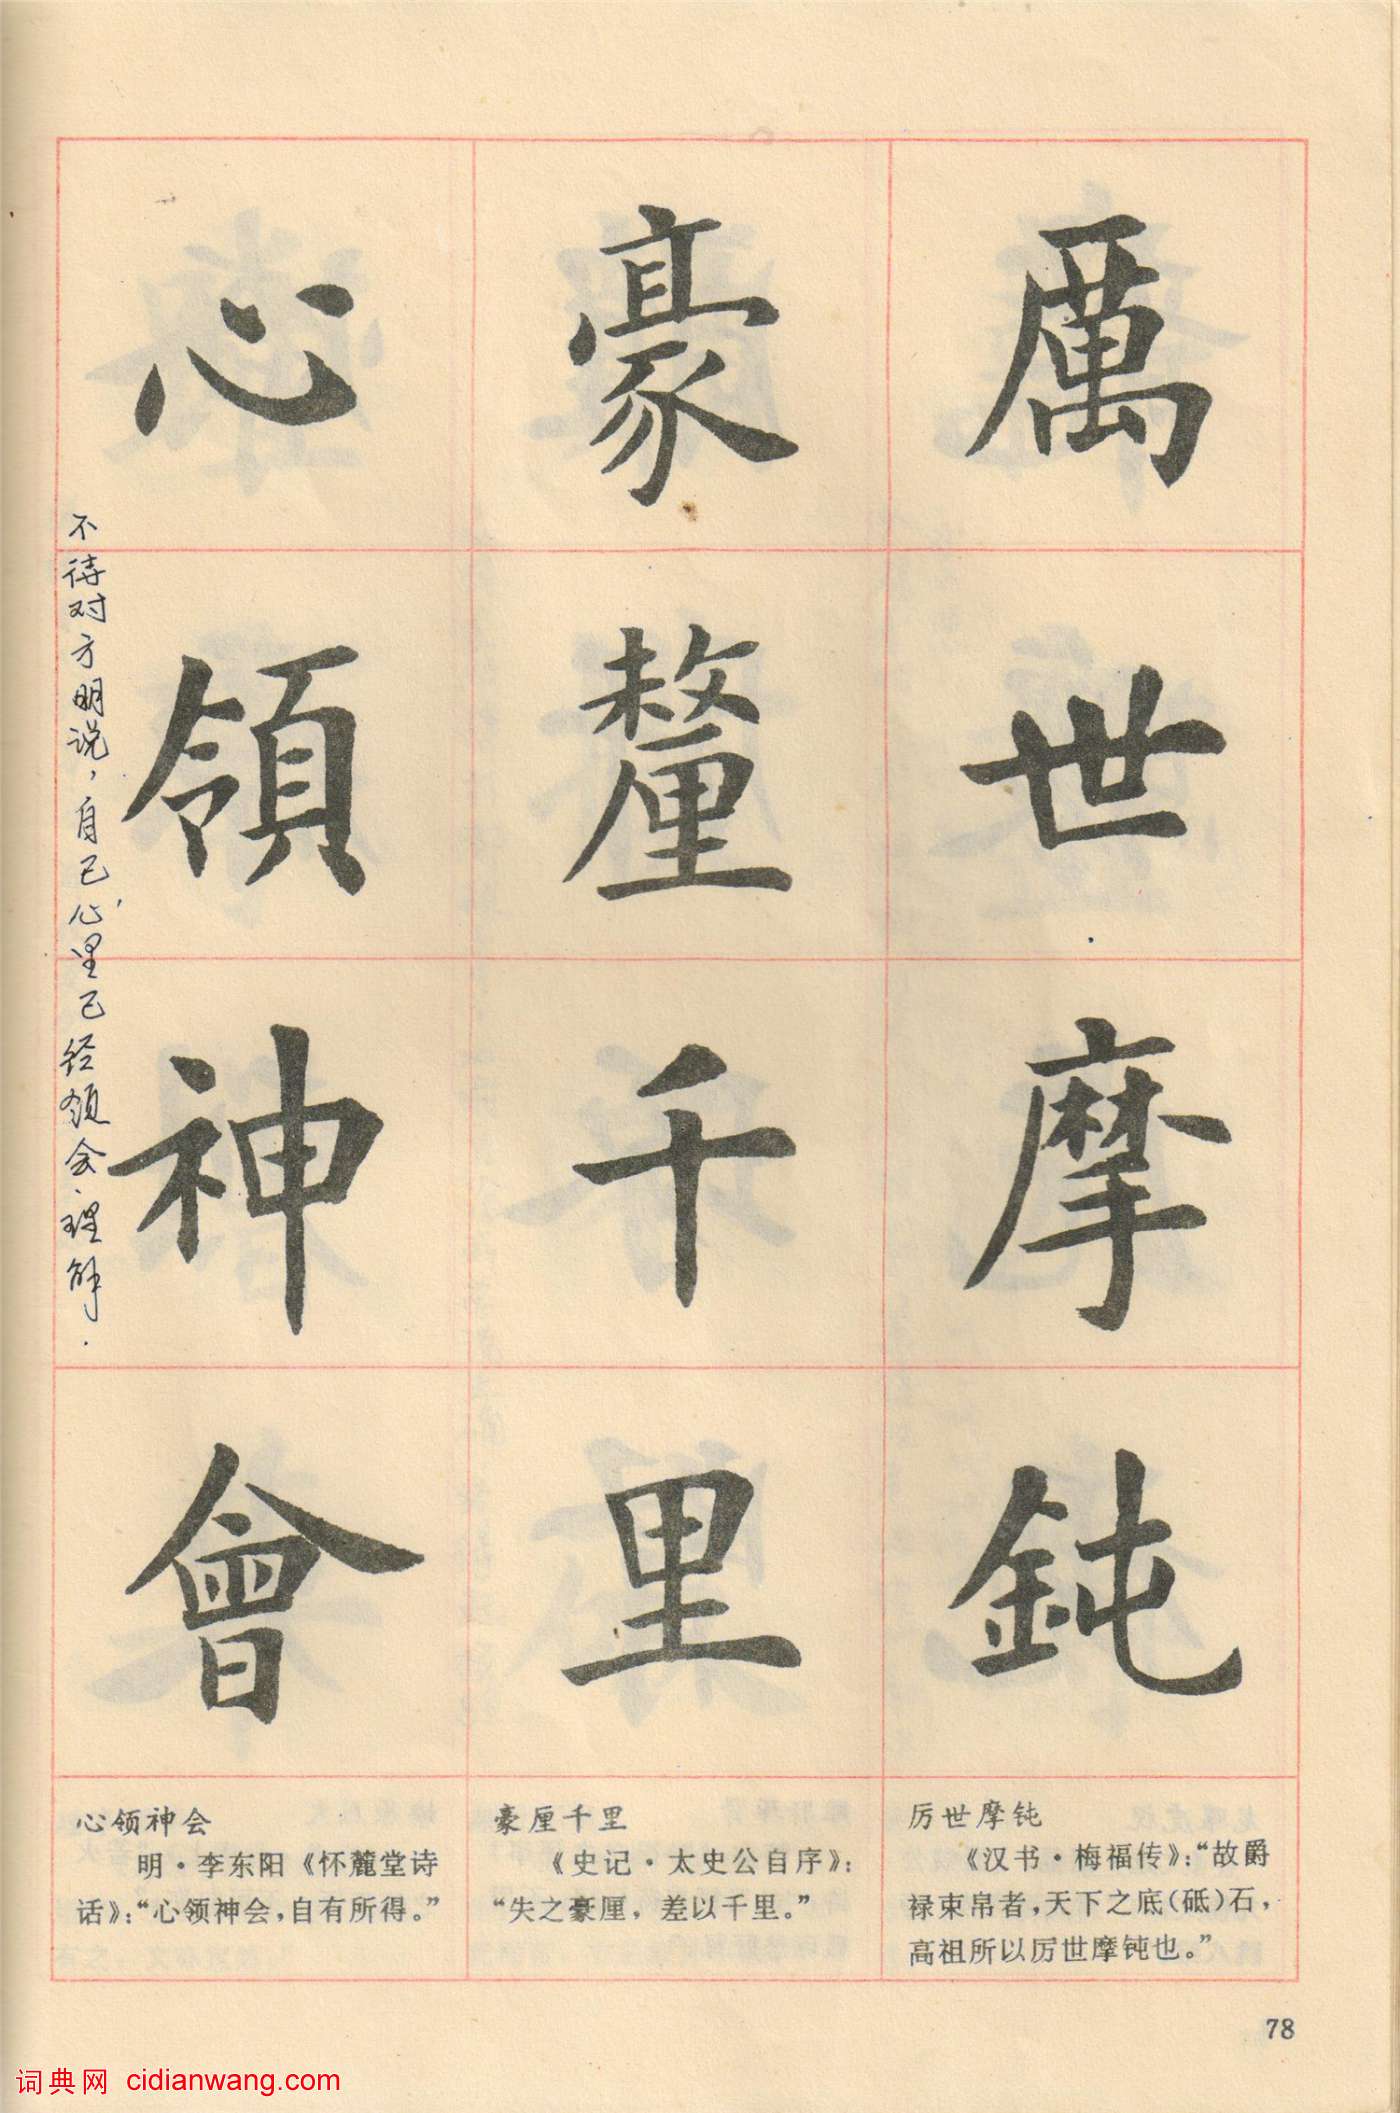 厲世摩鈍
豪釐千里
心領神會
不待对方明说，自己心里已经领会、理解.
厉世摩钝
《汉书·梅福传》：“故爵
禄束帛者，天下之底（砥）石，
高祖所以厉世摩钝也。”
豪厘千里
《史记·太史公自序》：
“失之豪厘，差以千里。”
心领神会
明·李东阳《怀麓堂诗
话》：“心领神会，自有所得。”
78
词典网 cidianwang.com